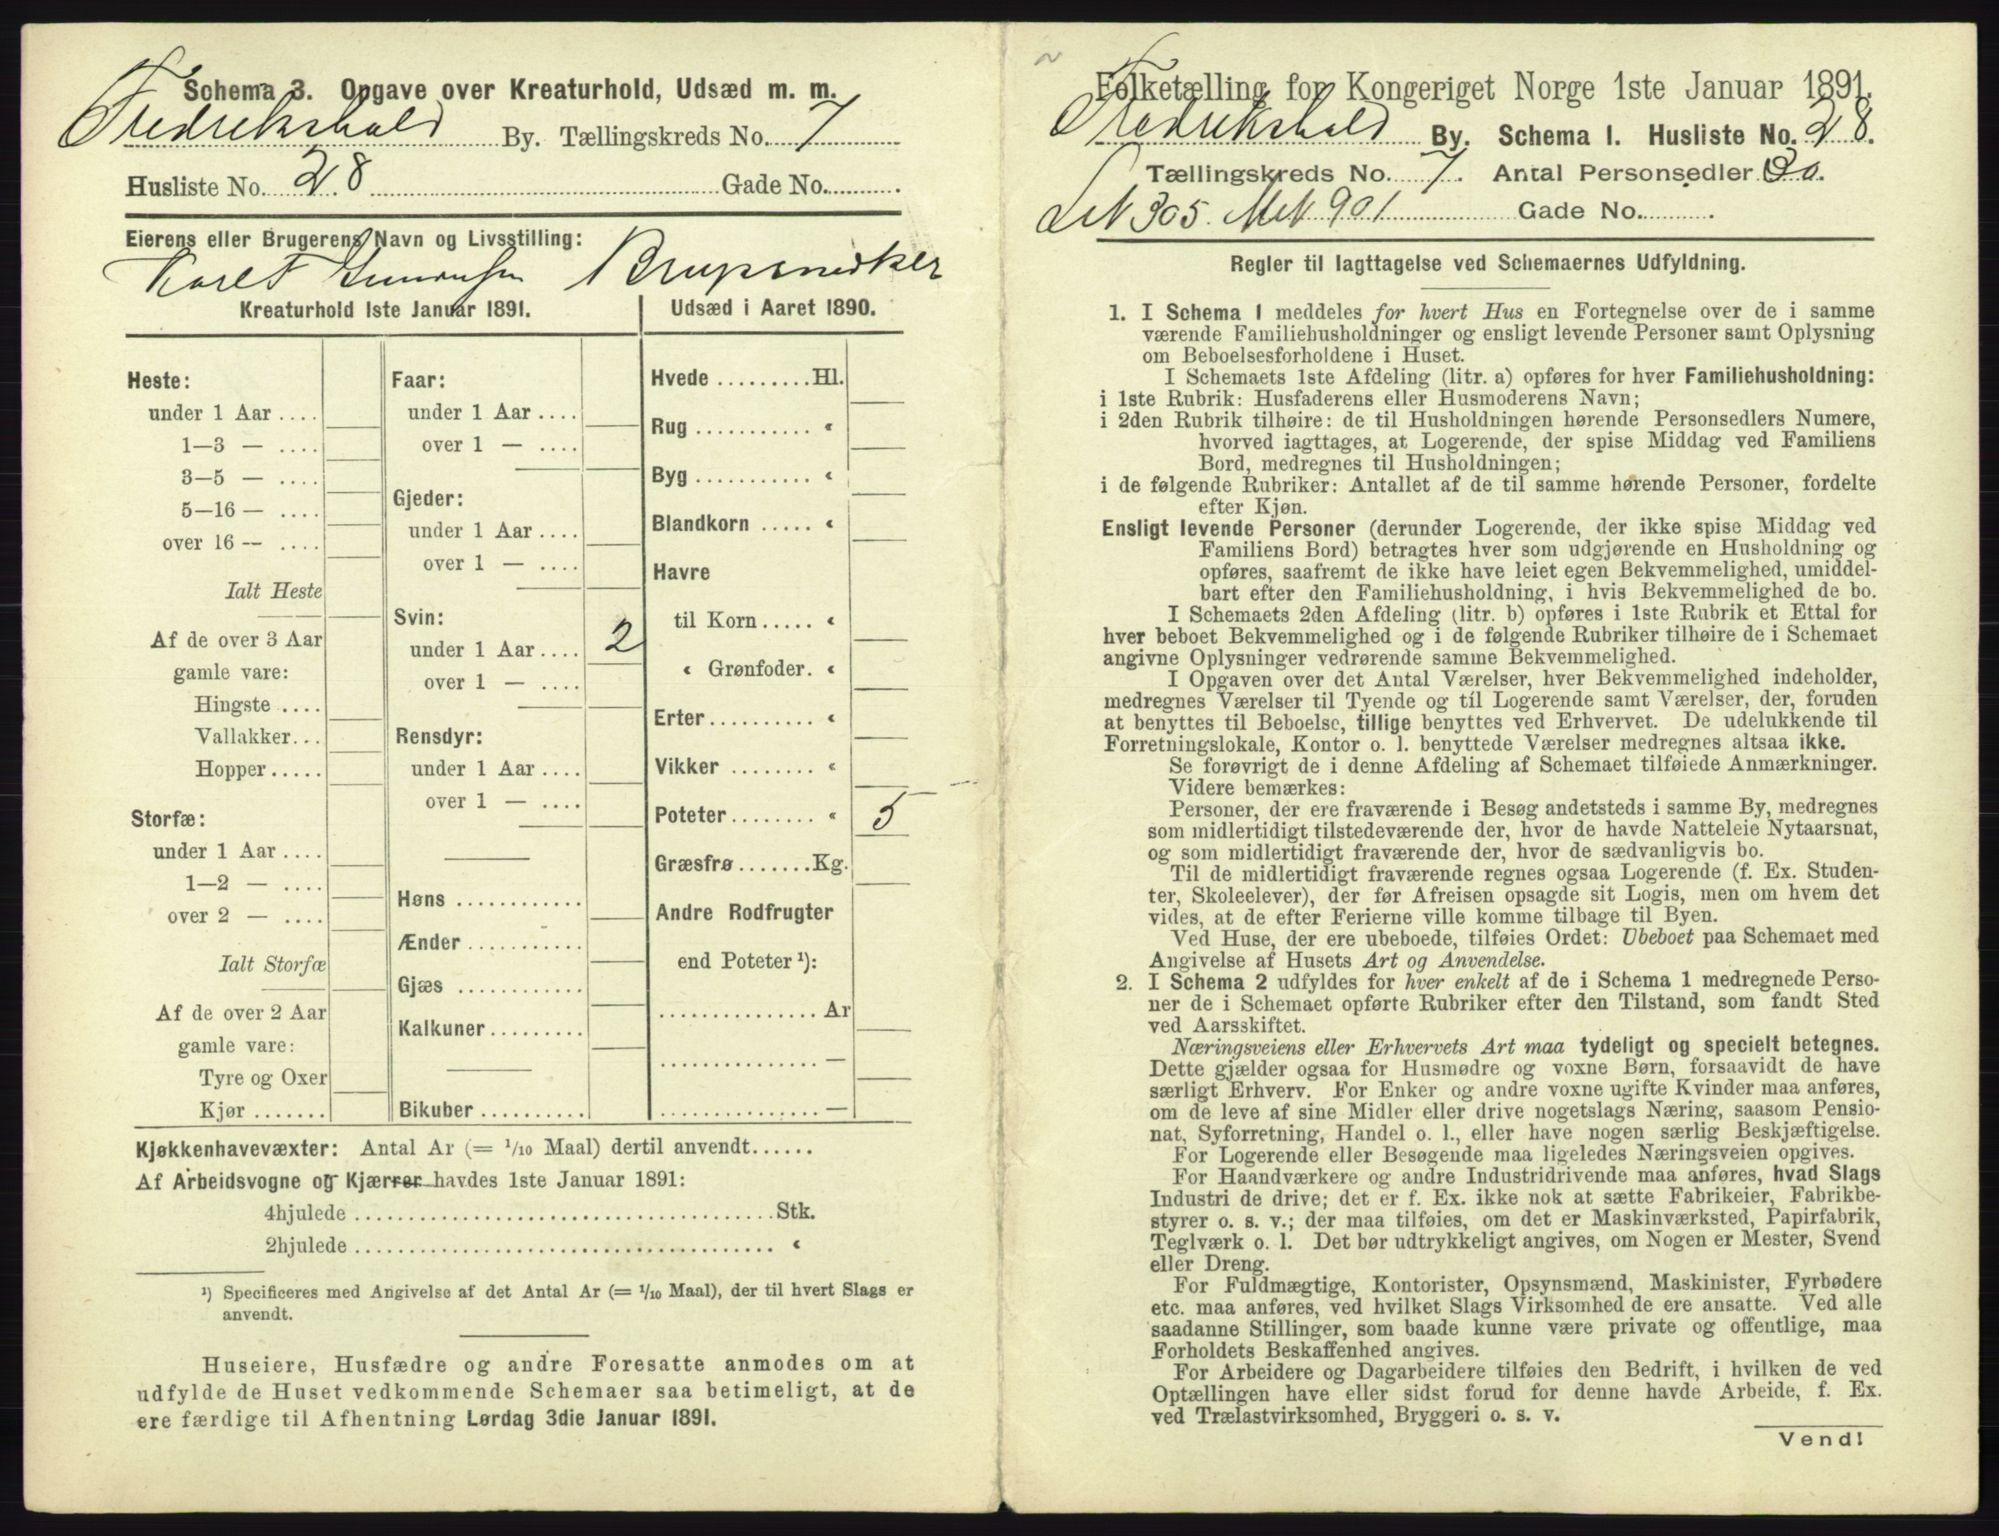 Schema 3. Opgave over Kreaturhold, Udsæd m. m.
Fredrikshald By. Tællingskreds No. 7
Husliste No. 28 Gade No.
Eierens eller Brugerens Navn og Livsstilling:
Karel
Kreaturhold 1ste Januar 1891.
Heste:
under 1 Aar ....
1—3 — ....
3—5 — ....
5—16 — ....
over 16 — ....
Ialt Heste
Af de over 3 Aar
gamle vare:
Hingste ....
Vallakker...
Hopper.....
Storfæ:
under 1 Aar ....
1—2 — ....
over 2 — ....
Ialt Storfæ
Af de over 2 Aar
gamle vare:
Tyre og Oxer
Kjør .......
Faar:
under 1 Aar ....
over 1 — ....
Gjeder:
under 1 Aar ....
over 1 — ....
Svin:
under 1 Aar .... 2
over 1 — ....
Rensdyr:
under 1 Aar ....
over 1 — ....
Høns ............
Ænder ...........
Gjæs ............
Kalkuner.........
Bikuber ..........
Udsæd i Aaret 1890.
Hvede .........Hl.
Rug ........... «
Byg ........... «
Blandkorn ..... «
Havre
til Korn..... «
« Grønfoder. «
Erter.......... «
Vikker ........ «
Poteter........ « 5
Græsfrø .......Kg.
Andre Rodfrugter
end Poteter ¹):
............... Ar
............... —
............... —
Kjøkkenhavevæxter: Antal Ar (= 1/10 Maal) dertil anvendt......
Af Arbeidsvogne og Kjærrer havdes 1ste Januar 1891:
4hjulede ....................................... Stk.
2hjulede ....................................... «
¹) Specificeres med Angivelse af det Antal Ar (= 1/10 Maal), der til hvert Slags er
anvendt.
Huseiere, Husfædre og andre Foresatte anmodes om at
udfylde de Huset vedkommende Schemaer saa betimeligt, at de
ere færdige til Afhentning Lørdag 3die Januar 1891.
Folketælling for Kongeriget Norge 1ste Januar 1891.
Fredrikshald By. Schema I. Husliste No. 28.
Tællingskreds No. 7. Antal Personsedler 30.
305. 901 Gade No.
Regler til Iagttagelse ved Schemaernes Udfyldning.
1. I Schema 1 meddeles for hvert Hus en Fortegnelse over de i samme
værende Familiehusholdninger og ensligt levende Personer samt Oplysning
om Beboelsesforholdene i Huset.
I Schemaets 1ste Afdeling (litr. a) opføres for hver Familiehusholdning:
i 1ste Rubrik: Husfaderens eller Husmoderens Navn;
i 2den Rubrik tilhøire: de til Husholdningen hørende Personsedlers Numere,
hvorved iagttages, at Logerende, der spise Middag ved Familiens
Bord, medregnes til Husholdningen;
i de følgende Rubriker: Antallet af de til samme hørende Personer, fordelte
efter Kjøn.
Ensligt levende Personer (derunder Logerende, der ikke spise Middag ved
Familiens Bord) betragtes hver som udgjørende en Husholdning og
opføres, saafremt de ikke have leiet egen Bekvemmelighed, umiddel-
bart efter den Familiehusholdning, i hvis Bekvemmelighed de bo.
I Schemaets 2den Afdeling (litr. b) opføres i 1ste Rubrik et Ettal for
hver beboet Bekvemmelighed og i de følgende Rubriker tilhøire de i Schemaet
angivne Oplysninger vedrørende samme Bekvemmelighed.
I Opgaven over det Antal Værelser, hver Bekvemmelighed indeholder,
medregnes Værelser til Tyende og til Logerende samt Værelser, der, foruden
at benyttes til Beboelse, tillige benyttes ved Erhvervet. De udelukkende til
Forretningslokale, Kontor o. l. benyttede Værelser medregnes altsaa ikke.
Se forøvrigt de i denne Afdeling af Schemaet tilføiede Anmærkninger.
Videre bemærkes:
Personer, der ere fraværende i Besøg andetsteds i samme By, medregnes
som midlertidigt tilstedeværende der, hvor de havde Natteleie Nytaarsnat,
og som midlertidigt fraværende der, hvor de sædvanligvis bo.
Til de midlertidigt fraværende regnes ogsaa Logerende (f. Ex. Studen-
ter, Skoleelever), der før Afreisen opsagde sit Logis, men om hvem det
vides, at de efter Ferierne ville komme tilbage til Byen.
Ved Huse, der ere ubeboede, tilføies Ordet: Ubeboet paa Schemaet med
Angivelse af Husets Art og Anvendelse.
2. I Schema 2 udfyldes for hver enkelt af de i Schema 1 medregnede Perso-
ner de i Schemaet opførte Rubriker efter den Tilstand, som fandt Sted
ved Aarsskiftet.
Næringsveiens eller Erhvervets Art maa tydeligt og specielt betegnes.
Dette gjælder ogsaa for Husmødre og voxne Børn, forsaavidt de have
særligt Erhverv. For Enker og andre voxne ugifte Kvinder maa anføres,
om de leve af sine Midler eller drive nogetslags Næring, saasom Pensio-
nat, Syforretning, Handel o. l., eller have nogen særlig Beskjæftigelse.
For Logerende eller Besøgende maa ligeledes Næringsveien opgives.
For Haandværkere og andre Industridrivende maa anføres, hvad Slags
Industri de drive; det er f. Ex. ikke nok at sætte Fabrikeier, Fabrikbe-
styrer o. s. v.; der maa tilføies, om det er Maskinværksted, Papirfabrik,
Teglværk o. l. Det bør udtrykkeligt angives, om Nogen er Mester, Svend
eller Dreng.
For Fuldmægtige, Kontorister, Opsynsmænd, Maskinister, Fyrbødere
etc. maa anføres, ved hvilket Slags Virksomhed de ere ansatte. Ved alle
saadanne Stillinger, som baade kunne være private og offentlige, maa
Forholdets Beskaffenhed angives.
For Arbeidere og Dagarbeidere tilføies den Bedrift, i hvilken de ved
Optællingen have eller sidst forud for denne havde Arbeide, f. Ex.
ved Trælastvirksomhed, Bryggeri o. s. v.
Vend!